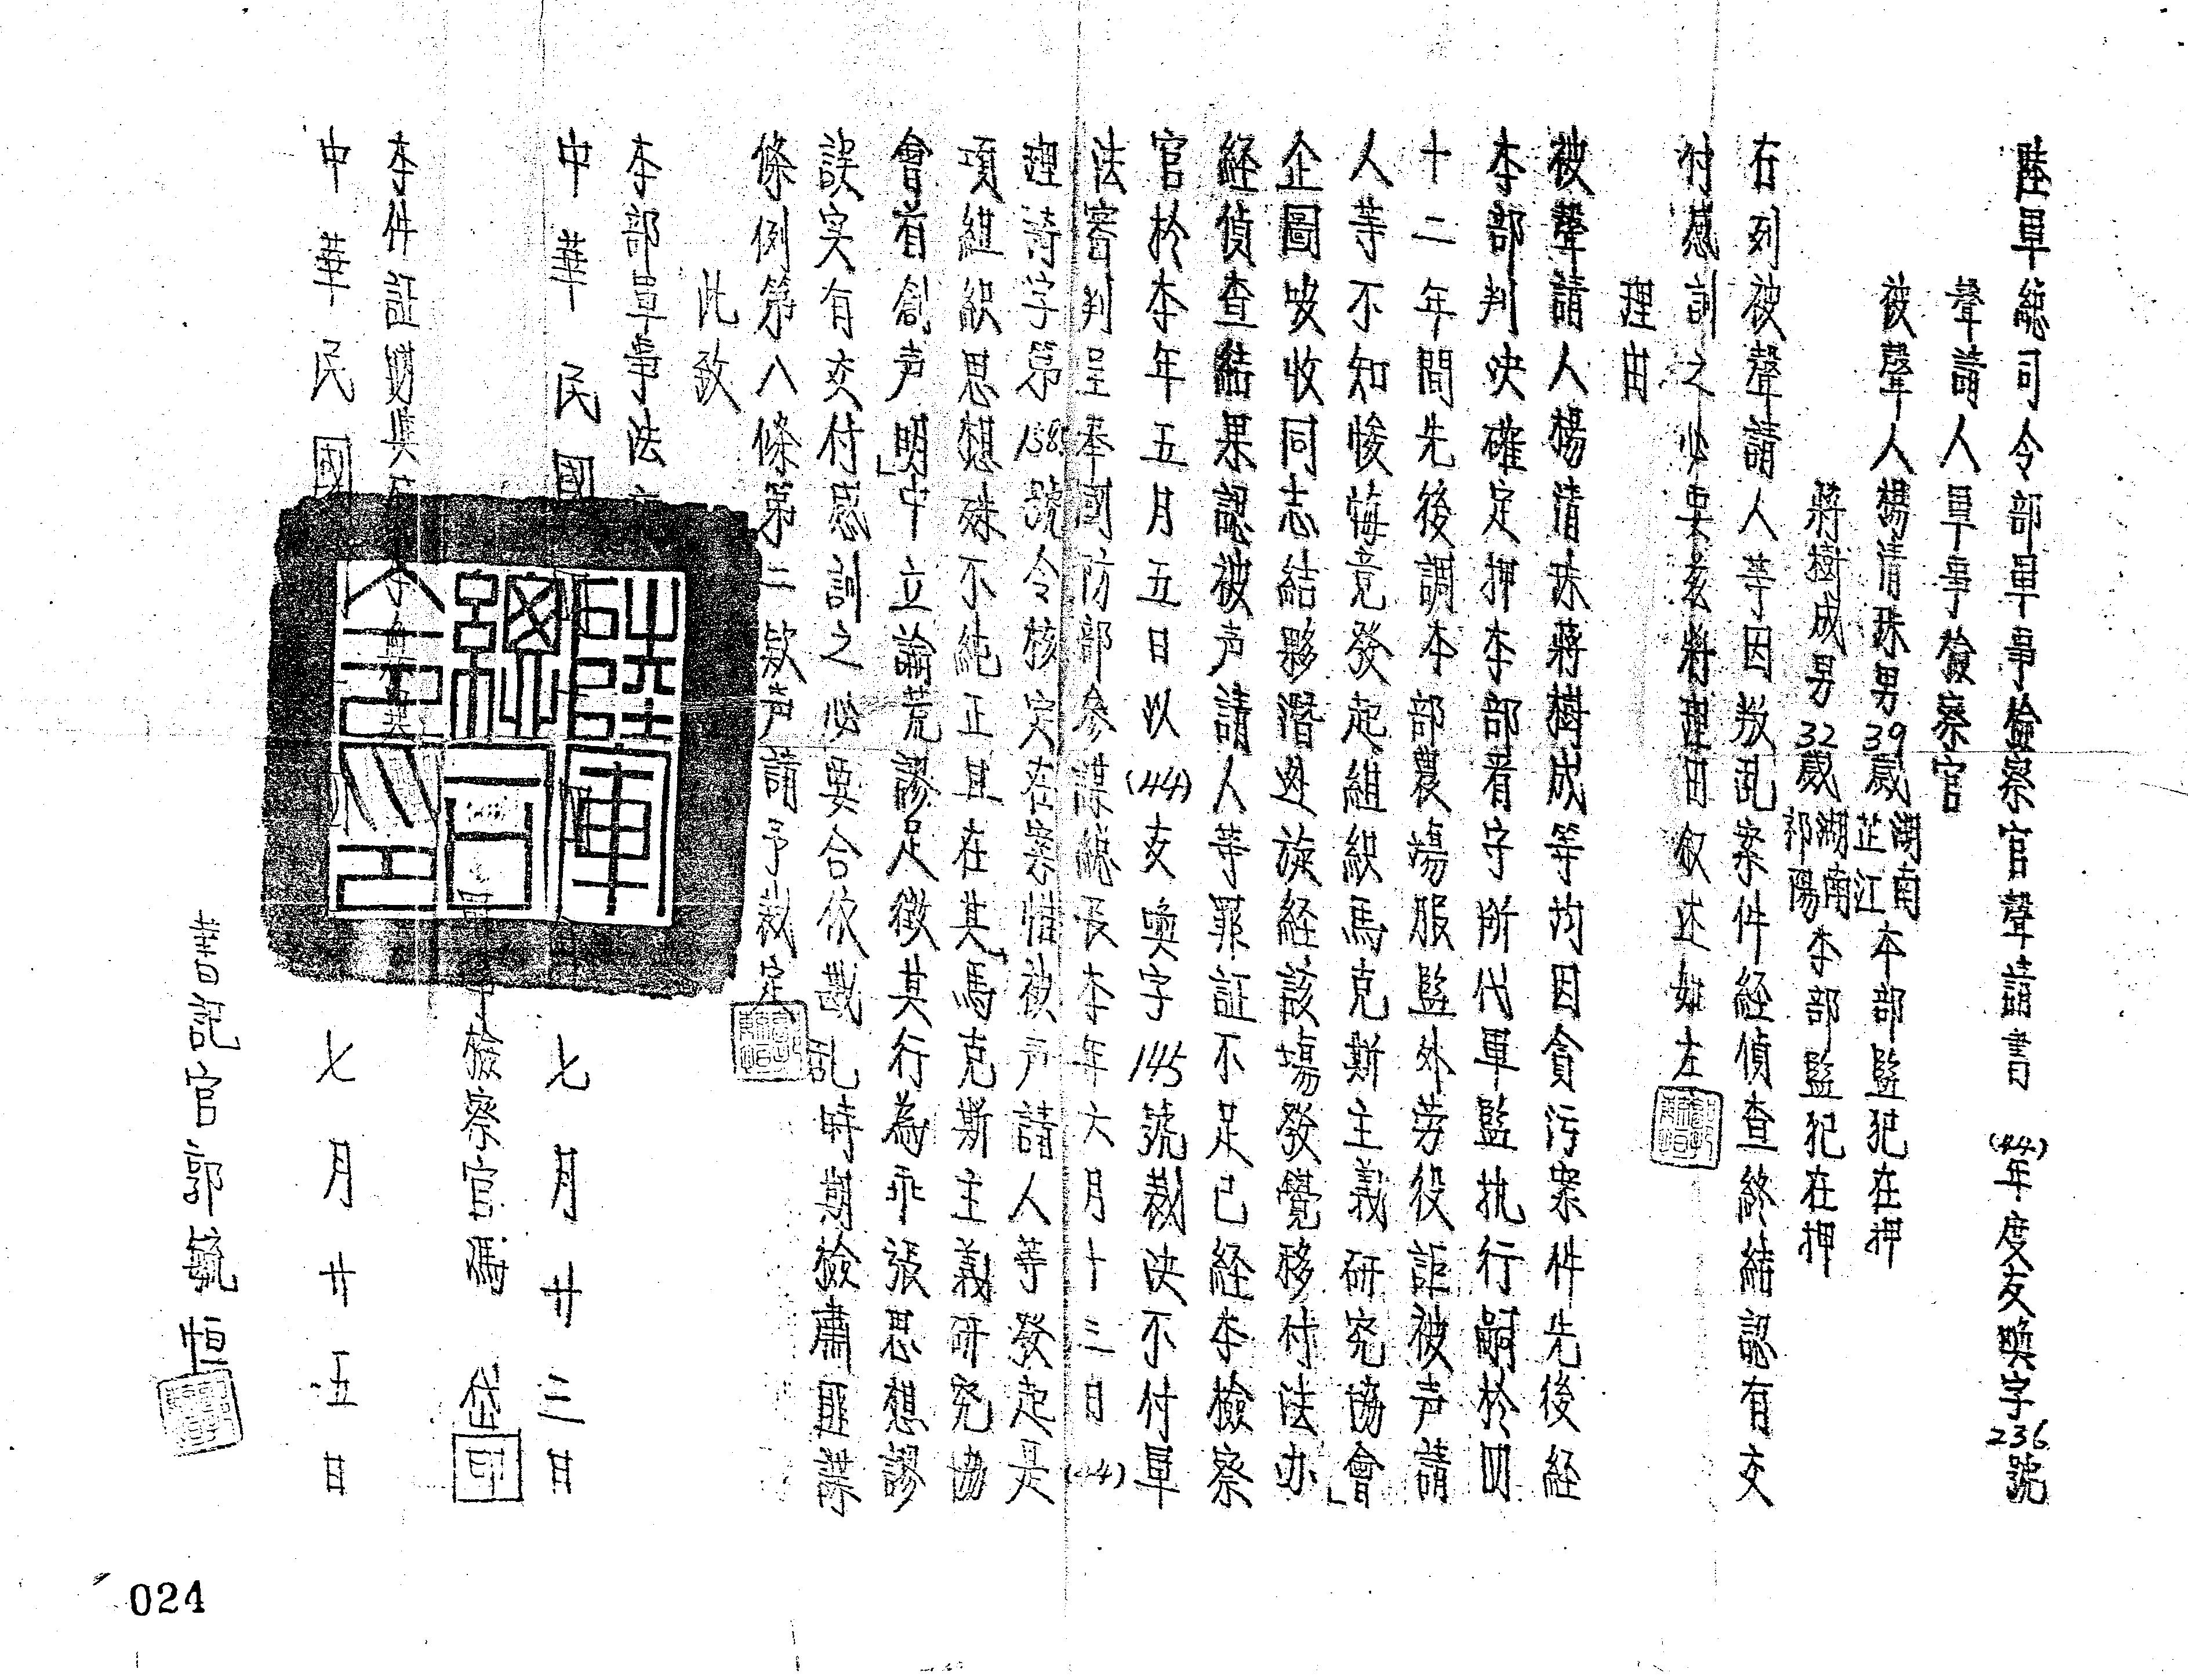 陸軍總司令部軍事檢察官聲請書 (44)年度友奬字236號
聲請人軍事檢察官
被聲人楊清珠男39歲湖南芷江本部監犯在押
蔣樹成男32歲湖南祁陽本部監犯在押
右列被聲請人等因叛乱案件経偵查終結認有交
付感訓之必要玆將理由叙述如左
理由
被聲請人楊清珠蔣樹成等均因貪污案件先後経
本部判決確定押本部看守所代軍監执行嗣於四
十二年間先後調本部農場服監外劳役詎被声請
人等不知悛悔竟發起組織馬克斯主義研究協會」
企圖吸收同志結夥潛逃旋経該場發覺移付法办
経偵查結果認被声請人等罪証不足已経本檢察
官於本年五月五日以(44)友奬字145號裁決不付軍
法審判呈奉國防部參謀總長本年六月十三日(44)
理 字第1585號令核定在案惟被声請人等發起是
項組織思想殊不純正且在其「馬克斯主義研究協
會首創声明」中立論荒謬足徵其行為乖張思想謬
誤实有交付感訓之必要合依戡乱時期檢肅匪諜
條例第八條第二款声請予裁定
此致
本部軍事法
中華民國 七月廿三日
檢察官馮 岱 印
本件証明與
中華民國 七月廿五日
書記官郭毓恒
陸軍總司令印
024